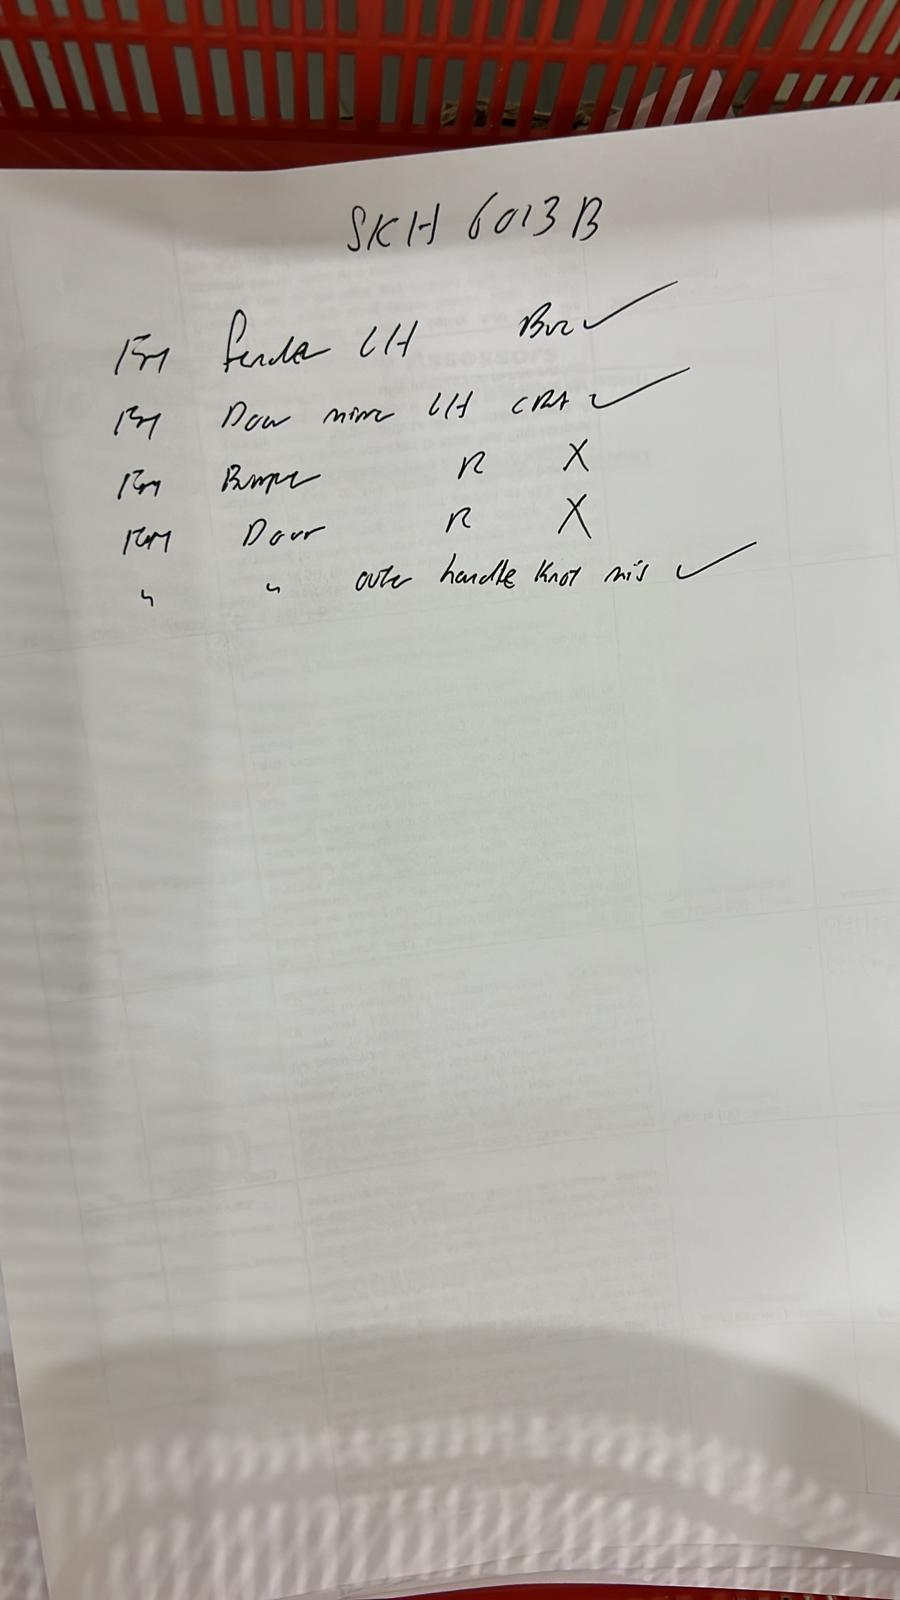 SKH 6013B
Frt fender LH Bur ✓
Frt Door mirror LH CRA ✓
Frt Bumper R X
RH Door R X
" " outer handle knot mis ✓